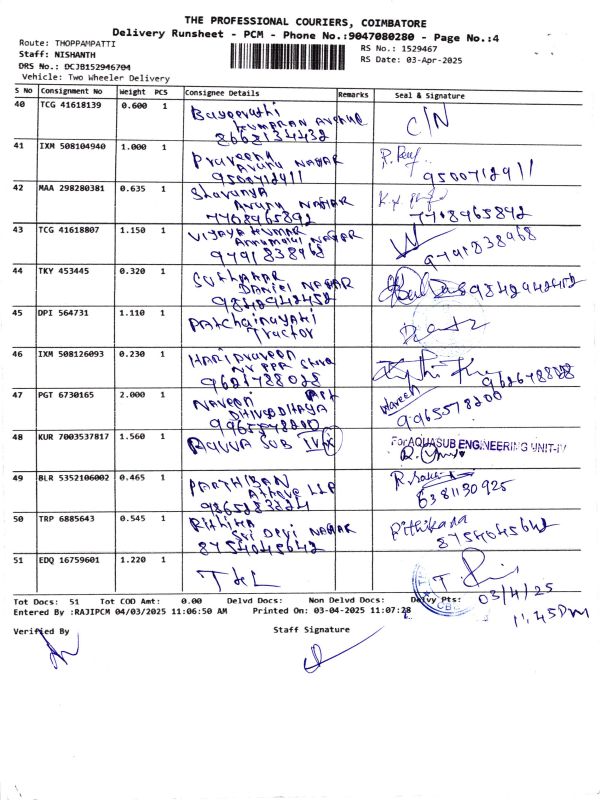 THE PROFESSIONAL COURIERS, COIMBATORE
Delivery Runsheet - PCM - Phone No.:9047080280 - Page No.:4
Route: THOPPAMPATTI
Staff: NISHANTH
DRS No.: DCJB152946704
Vehicle: Two Wheeler Delivery
RS No.: 1529467
RS Date: 03-Apr-2025
S No Consignment No Weight PCS Consignee Details Remarks Seal & Signature
40 TCG 41618139 0.600 1
8662134432
C/N
41 IXM 508104940 1.000 1 Praveena
Avaru NAGAR
9500712911
9500712911
42 MAA 298280381 0.635 1 Shavanya
Avaru NAGAR
7708465892
7708465892
43 TCG 41618807 1.150 1 VIJAYA KUMAR
Annamalai NAGAR
9791838968
9791838968
44 TKY 453445 0.320 1 SUTHAKAR
DANIEL NAGAR
9842942452
9842942452
45 DPI 564731 1.110 1 Patchainayaki
Tractor
46 IXM 508126093 0.230 1 HARIPraveen
47 PGT 6730165 2.000 1 NAVEEN
Naveen
9965578200
48 KUR 7003537817 1.560 1 AQUVA SUB IV
For AQUASUB ENGINEERING UNIT-IV
49 BLR 5352106002 0.465 1 PARTHIBAN
9865283224
6381130925
50 TRP 6885643 0.545 1 Rithika
Sri Devi NAGAR
8754045642
8754045642
51 EDQ 16759601 1.220 1
03/4/25
Tot Docs: 51 Tot COD Amt: 0.00 Delvd Docs: Non Delvd Docs: Delvy Pts:
Entered By :RAJIPCM 04/03/2025 11:06:50 AM Printed On: 03-04-2025 11:07:28
Verified By Staff Signature